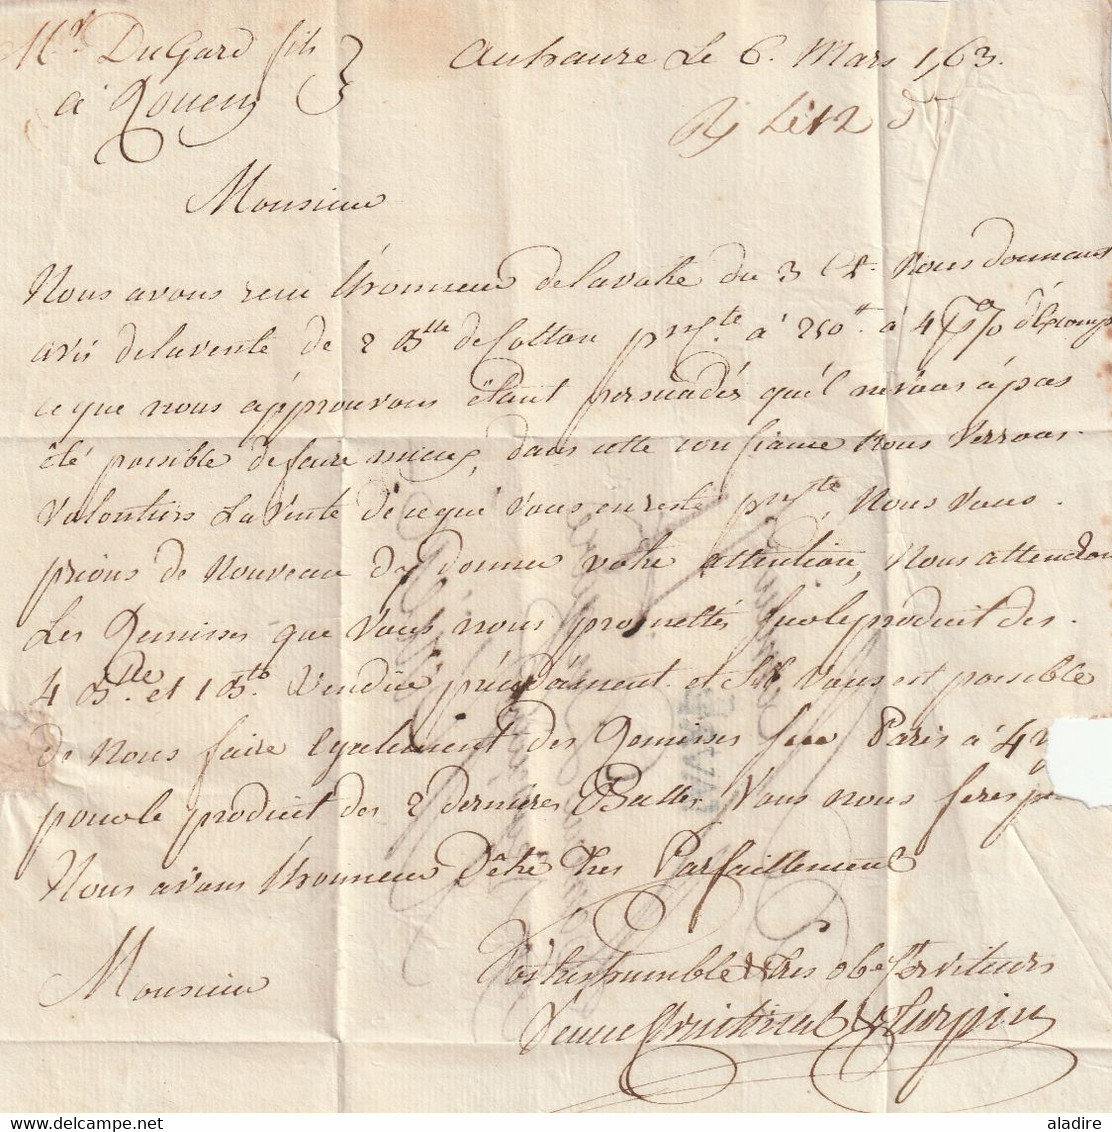 Mr. DuGard fils
à Roüen
Auhavre Le 6. Mars 1763.
Rx Le 12 d°
Monsieur
Nous avons recu l'honneur delavotre du 3 Ct. Nous donnant
avis delavente de 2 Blle de Cotton à 250tt à 4 p% d'Escompte
ceque nous àpprouvons Etant persuadés quil nevous à pas
été possible defaire mieux, dans cette confiance Nous Verrons
Valontiers La Vente de ceque Vous enreste, Nous Vous
prions de Nouveau dy donner votre attention, Nous attendons
Les Remises que Vous nous promettés surleproduit des
4 Blle et 1 Bto Vendüe précédament et S'il Vous est possible
de Nous faire Egalement des Remises sur Paris à 4
pourle produit des 2 dernieres Balles Vous nous ferés
Nous avons l'honneur d'être Tres Parfaittement
Monsieur
Vos treshumble & tres obet Serviteurs
Veuve & Turpin
aladire